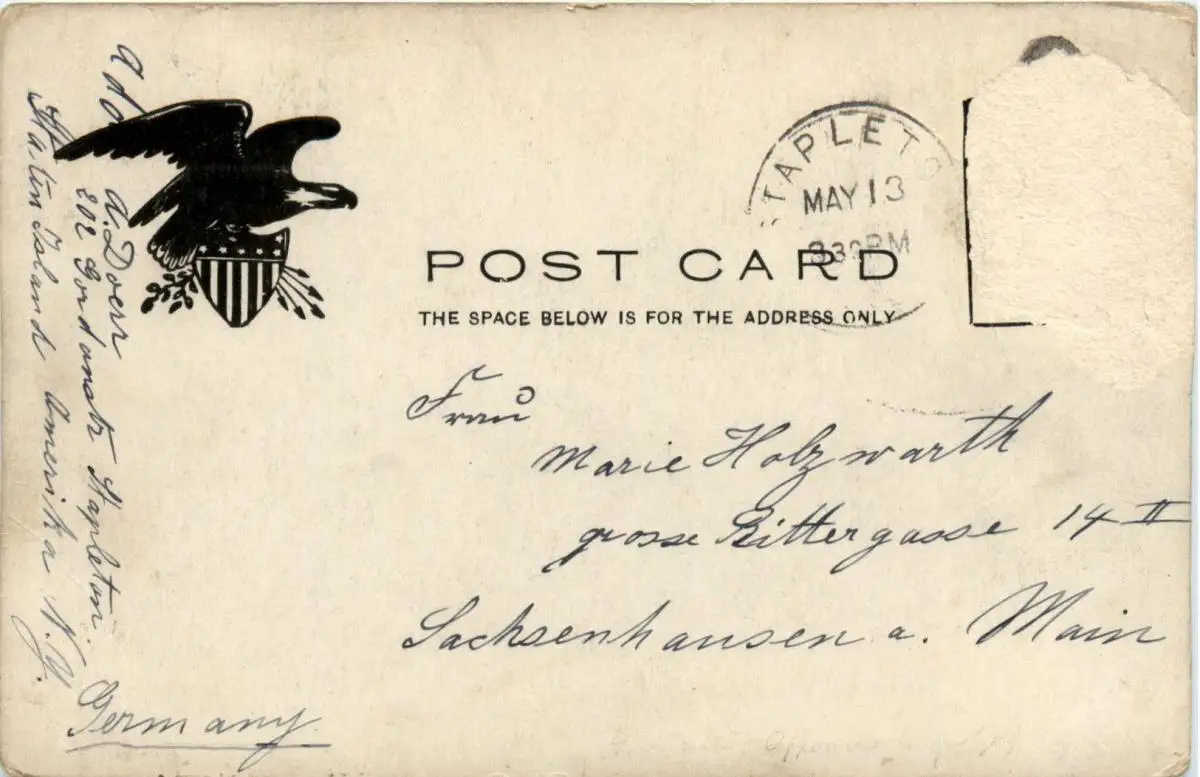 STAPLETO
MAY 13
330 PM
POST CARD
THE SPACE BELOW IS FOR THE ADDRESS ONLY
Frau
Marie Holzwarth
grosse Rittergasse 14 II
Sachsenhausen a. Main
Germany
A. Doerr
202 Gordonstr Stapleton.
Staten Island Amerika N.Y.